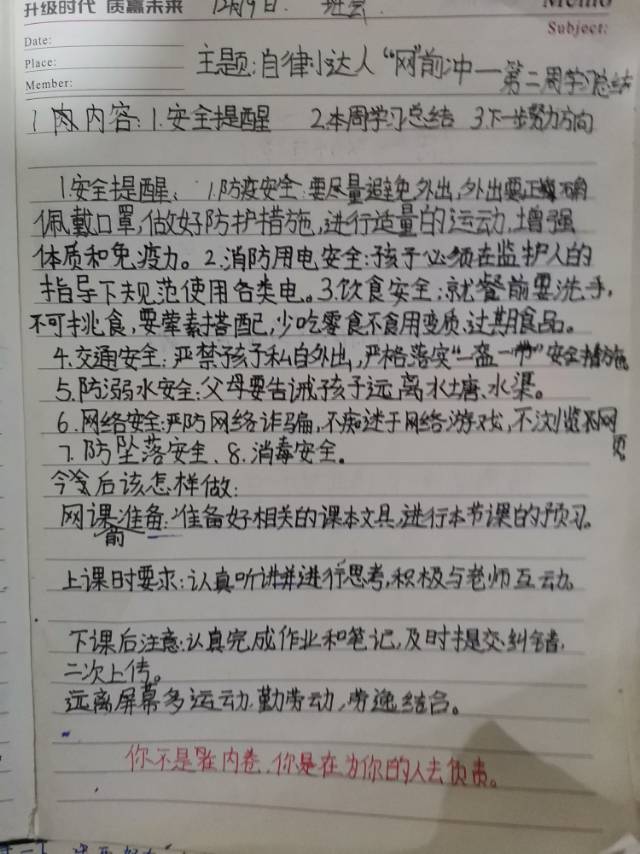 升级时代 质赢未来 12月9日. 班会.
Memo
Subject:
Date:
Place:
Member:
主题:自律小达人"网"前冲—第二周学习总结
内容:1.安全提醒 2.本周学习总结 3.下一步努力方向
1.安全提醒、1.防疫安全:要尽量避免外出,外出要正确
佩戴口罩,做好防护措施,进行适量的运动,增强
体质和免疫力。2.消防用电安全:孩子必须在监护人的
指导下规范使用各类电。3.饮食安全:就餐前要洗手,
不可挑食,要荤素搭配,少吃零食不食用变质、过期食品。
4.交通安全:严禁孩子私自外出,严格落实"一盔一带"安全措施
5.防溺水安全:父母要告诫孩子远离水塘、水渠。
6.网络安全:严防网络诈骗,不痴迷于网络游戏,不浏览不网页。
7.防坠落安全、8.消毒安全。
今后该怎样做:
网课前准备:准备好相关的课本文具,进行本节课的预习。
上课时要求:认真听讲并进行思考,积极与老师互动。
下课后注意:认真完成作业和笔记,及时提交,纠错,
二次上传。
远离屏幕多运动,勤劳动,劳逸结合。
你不是跟内卷,你是在为你的人去负责。